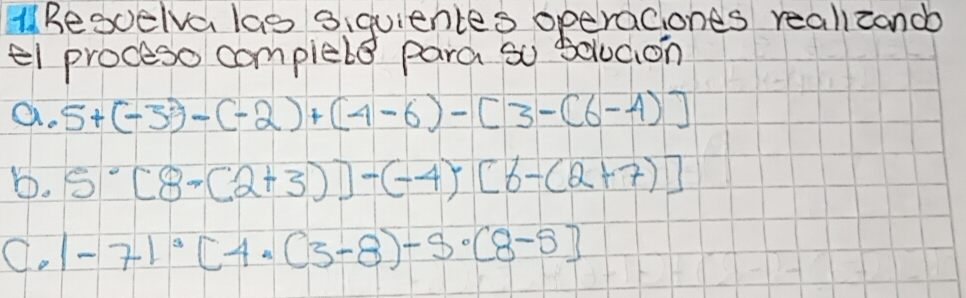 1. Resuelva las siguientes operaciones realizando
el proceso completo para su solución
a. 5+(-3)-(-2)+(4-6)-[3-(6-4)]
b. 5·[8-(2+3)]-(-4)·[6-(2+7)]
c. |-7|·[4·(3-8)-5·(8-5]